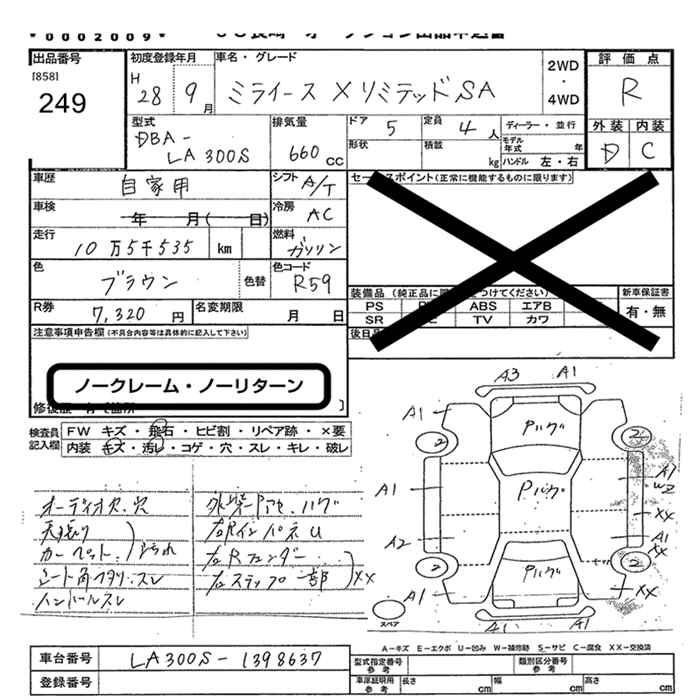 *0002009*
出品番号 初度登録年月 車名・グレード 2WD・4WD 評価点
[858] H 28 9月 ミライース XリミテッドSA R
249
型式 排気量 ドア 5 定員 4人 ディーラー・並行 外装 内装
DBA-LA300S 660cc 形状 積載 kg モデル年式 年 ハンドル 左・右 D C
車歴 自家用 シフト A/T セールスポイント(正常に機能するものに限ります)
車検 年 月( 日) 冷房 AC
走行 10万5千535 km 燃料 ガソリン
色 ブラウン 色替 色コード R59
装備品 新車保証書
R券 7,320円 名変期限 月 日 PS ABS エアB 有・無
SR TV カワ
注意事項申告欄(不具合内容等は具体的に記入して下さい) 後日
ノークレーム・ノーリターン
検査員記入欄 FW キズ・飛石・ヒビ割・リペア跡・×要
内装 キズ・汚レ・コゲ・穴・スレ・キレ・破レ
A3 A1
A1 Pハゲ
2 2
A1 Pハゲ A1 W2
XX
A2 A1 XX
2 Pハゲ 2
A1 XX
スペア A1 A1
オーディオ欠.穴
天張り
カーペット.汚れ
シート角ヘタリ.スレ
ハンドルスレ
右RインパネU
右Rフェンダー
右ステップ一部 XX
A-キズ E-エクボ U-凹み W-補修跡 S-サビ C-腐食 XX-交換済
車台番号 LA300S-1398637 型式指定番号 参考 類別区分番号 参考
登録番号 車庫証明用 参考 長さ cm 幅 cm 高さ cm